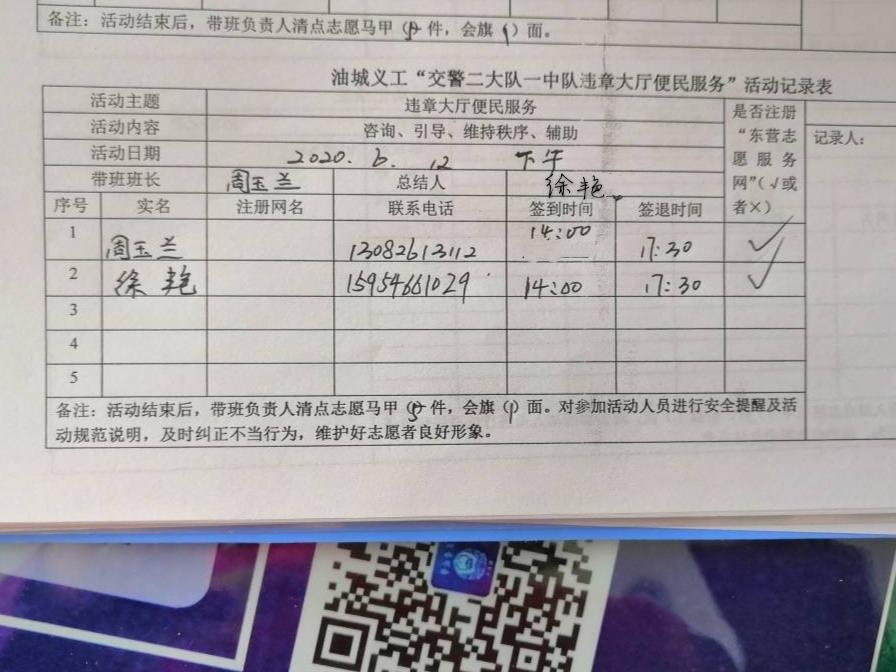 备注：活动结束后，带班负责人清点志愿马甲（5）件，会旗（1）面。
油城义工“交警二大队一中队违章大厅便民服务”活动记录表
活动主题 违章大厅便民服务 是否注册“东营志愿服务网”（√或者×） 记录人：
活动内容 咨询、引导、维持秩序、辅助
活动日期 2020. 6. 12 下午
带班班长 周玉兰 总结人 徐艳
序号 实名 注册网名 联系电话 签到时间 签退时间
1 周玉兰 13082613112 14:00 17:30 √
2 徐艳 15954661029 14:00 17:30 √
3
4
5
备注：活动结束后，带班负责人清点志愿马甲（5）件，会旗（1）面。对参加活动人员进行安全提醒及活
动规范说明，及时纠正不当行为，维护好志愿者良好形象。